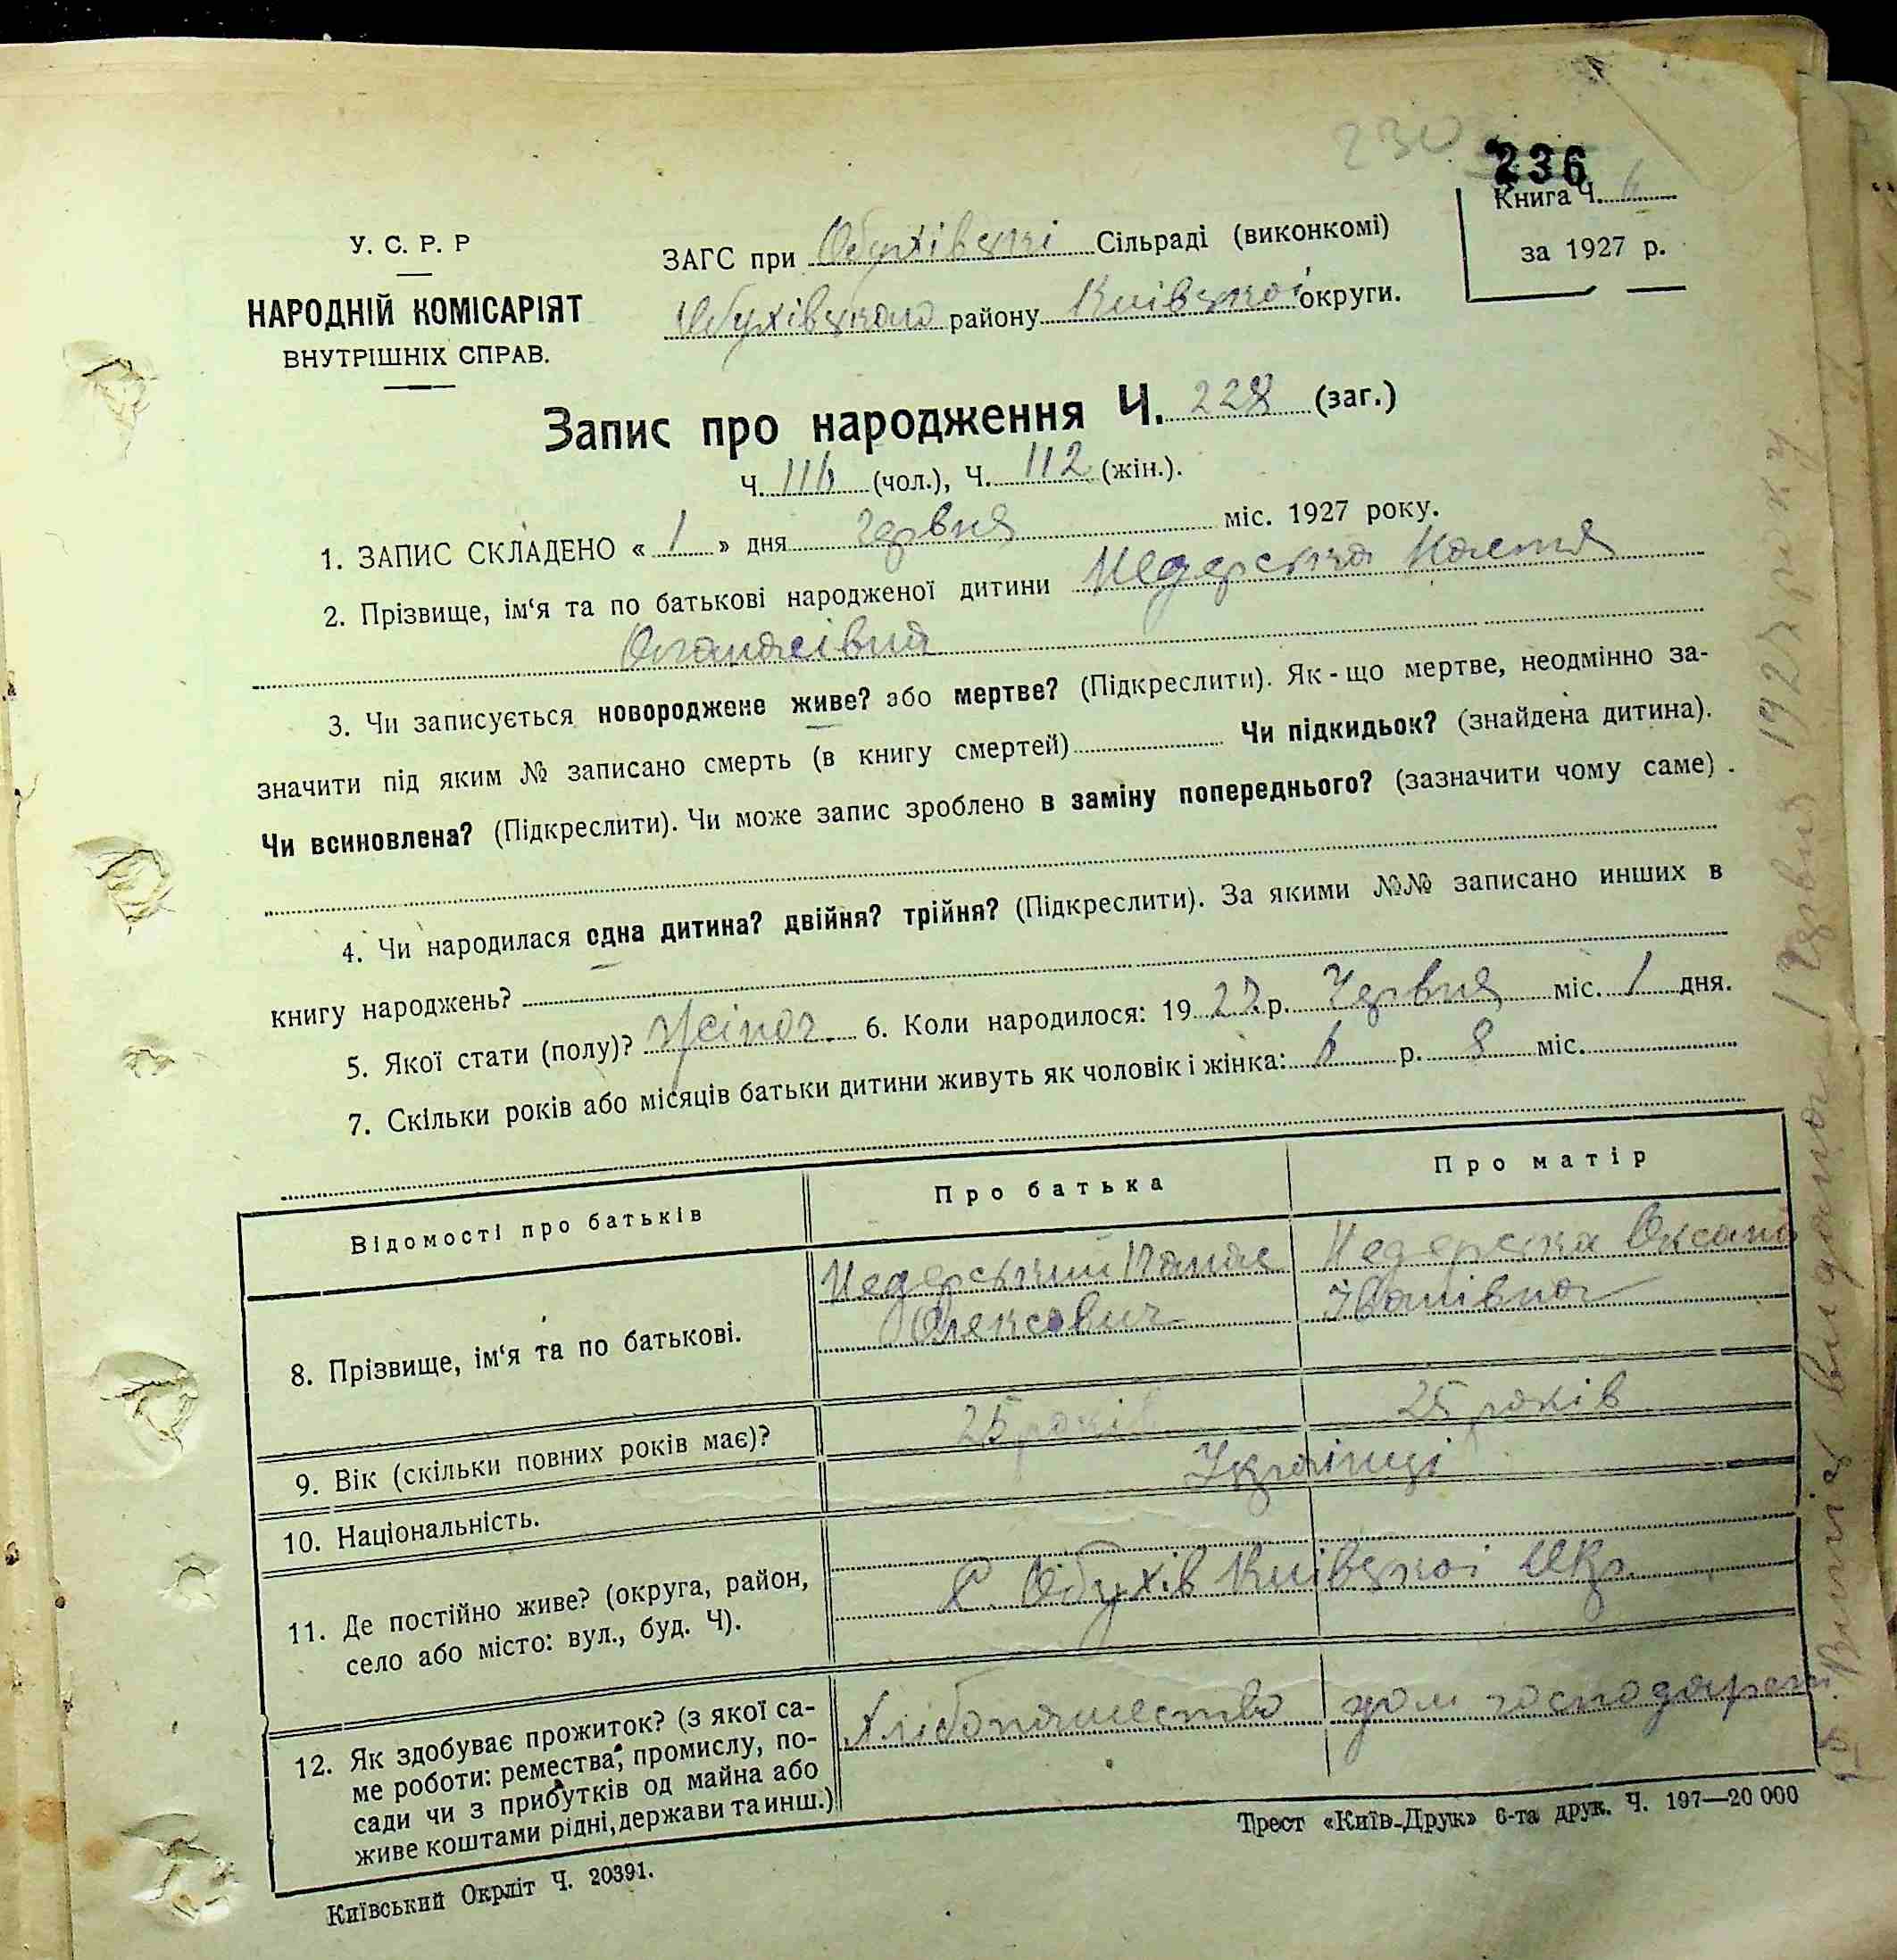 230
236
Книга Ч. 6
за 1927 р.
У. С. Р. Р
НАРОДНІЙ КОМІСАРІЯТ
ВНУТРІШНІХ СПРАВ.
ЗАГС при Обухівські Сільраді (виконкомі)
Обухівського району Київської округи.
Запис про народження Ч. 228 (заг.)
Ч. 116 (чол.), Ч. 112 (жін.).
1. ЗАПИС СКЛАДЕНО « 1 » дня Червня міс. 1927 року.
2. Прізвище, ім‘я та по батькові народженої дитини Недерська Настя
Опанасівна
3. Чи записується новороджене живе? або мертве? (Підкреслити). Як-що мертве, неодмінно за-
значити під яким № записано смерть (в книгу смертей) Чи підкидьок? (знайдена дитина).
Чи всиновлена? (Підкреслити). Чи може запис зроблено в заміну попереднього? (зазначити чому саме) .
4. Чи народилася одна дитина? двійня? трійня? (Підкреслити). За якими №№ записано инших в
книгу народжень?
5. Якої стати (полу)? жіноч. 6. Коли народилося: 1927 р. Червня міс. 1 дня.
7. Скільки років або місяців батьки дитини живуть як чоловік і жінка: 6 р. 8 міс.
Відомості про батьків Про батька Про матір
8. Прізвище, ім‘я та по батькові.
Недерський Панас
Олексович
Недерська Оксана
Іванівна
9. Вік (скільки повних років має)? 25 років 25 років
10. Національність. Українці
11. Де постійно живе? (округа, район,
село або місто: вул., буд. Ч).
С. Обухів Київської Окр.
12. Як здобуває прожиток? (з якої са-
ме роботи: ремества, промислу, по-
сади чи з прибутків од майна або
живе коштами рідні, держави та инш.)
Хлібопашество дом господарст.
Київський Окрліт Ч. 20391.
Трест «Київ-Друк» 6-та друк. Ч. 197—20 000
Випис видана 1 Червня 1927 року